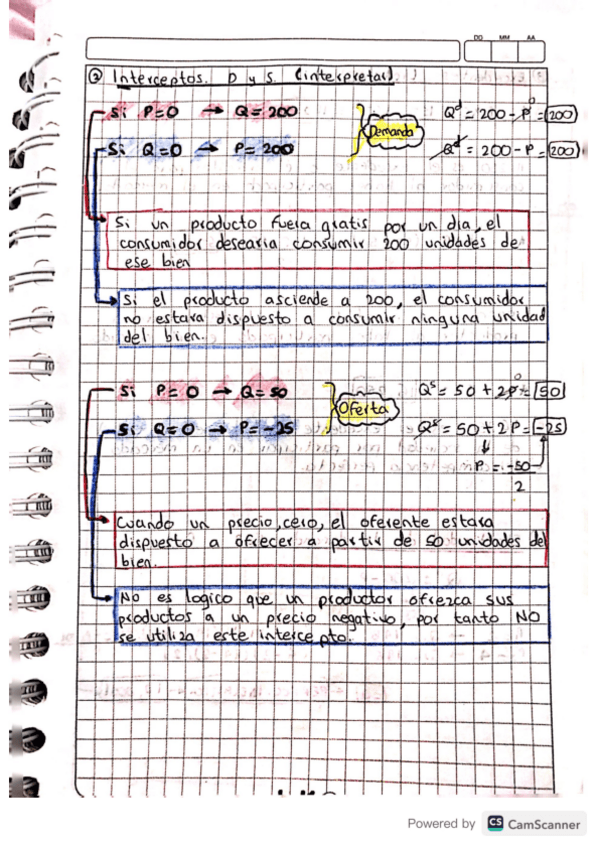 DD MM AA
② Interceptos. D y S. (interpretar)
Si P=0 → Q=200
Si Q=0 → P=200
Demanda
Qᵈ = 200 - P⁰ = 200
Qᵈ = 200 - P = 200
Si un producto fuera gratis por un dia, el
consumidor desearia consumir 200 unidades de
ese bien
Si el producto asciende a 200, el consumidor
no estara dispuesto a consumir ninguna unidad
del bien.
Si P=0 → Q=50
Si Q=0 → P=-25
Oferta
Qˢ = 50 + 2P⁰ = 50
Qˢ = 50 + 2P = -25
P = -50
2
Cuando un precio, cero, el oferente estara
dispuesto a ofrecer a partir de 50 unidades del
bien.
No es logico que un productor ofrezca sus
productos a un precio negativo, por tanto NO
se utiliza este intercepto.
Powered by CS CamScanner